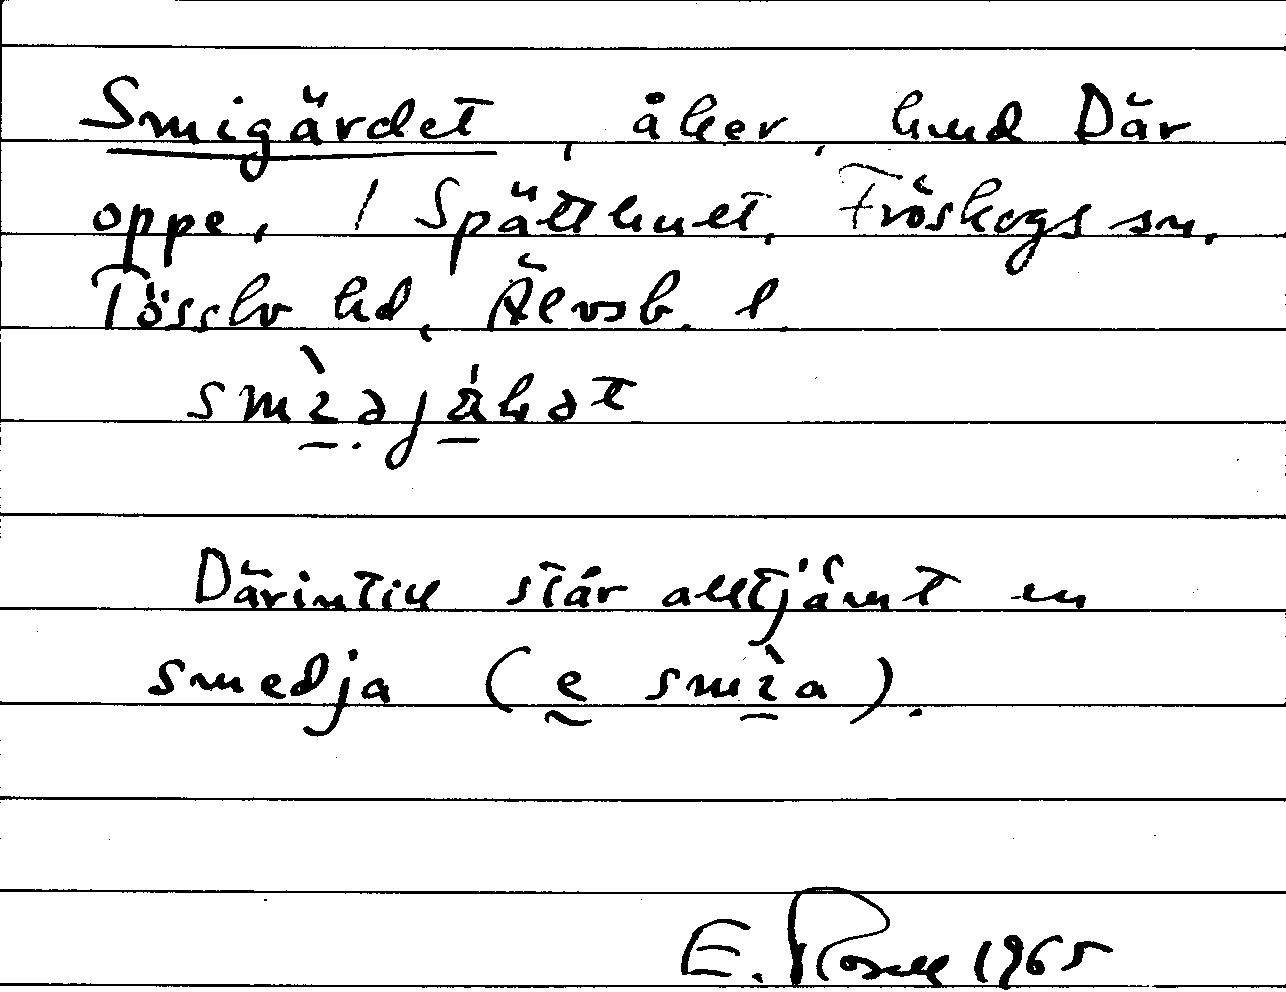 Smigärdet, åker, hmd Där
oppe, / Spätthult, Fröskogs sn,
Tössbo hd, Älvsb. l.
Därintill står alltjämt en
smedja (e smìa).
E. Rosell 1965